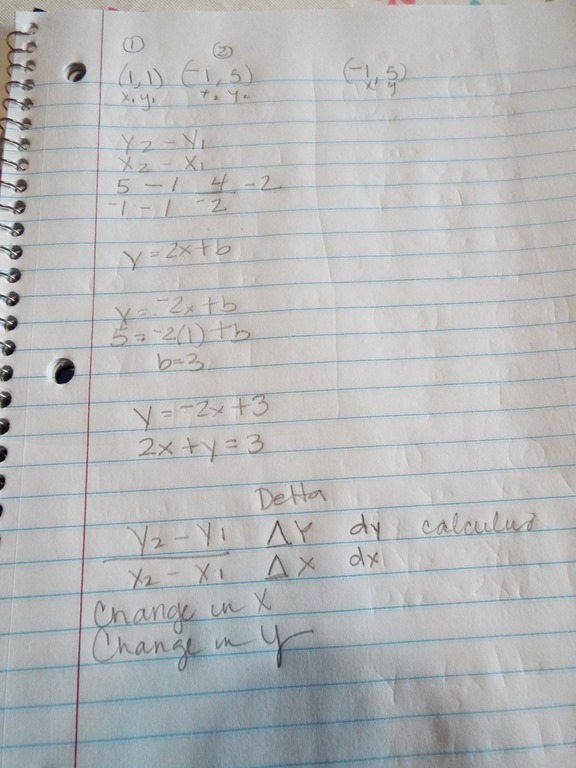 ① ②
(1, 1) (-1, 5) (-1, 5)
x₁ y₁ x₂ y₂ x y
Y2 - Y1
X2 - X1
5 - 1 4 -2
-1 - 1 -2
y = 2x + b
y = -2x + b
5 = -2(1) + b
b = 3
y = -2x + 3
2x + y = 3
Delta
Y2 - Y1 ΔY dy calculus
X2 - X1 ΔX dx
Change in X
Change in y